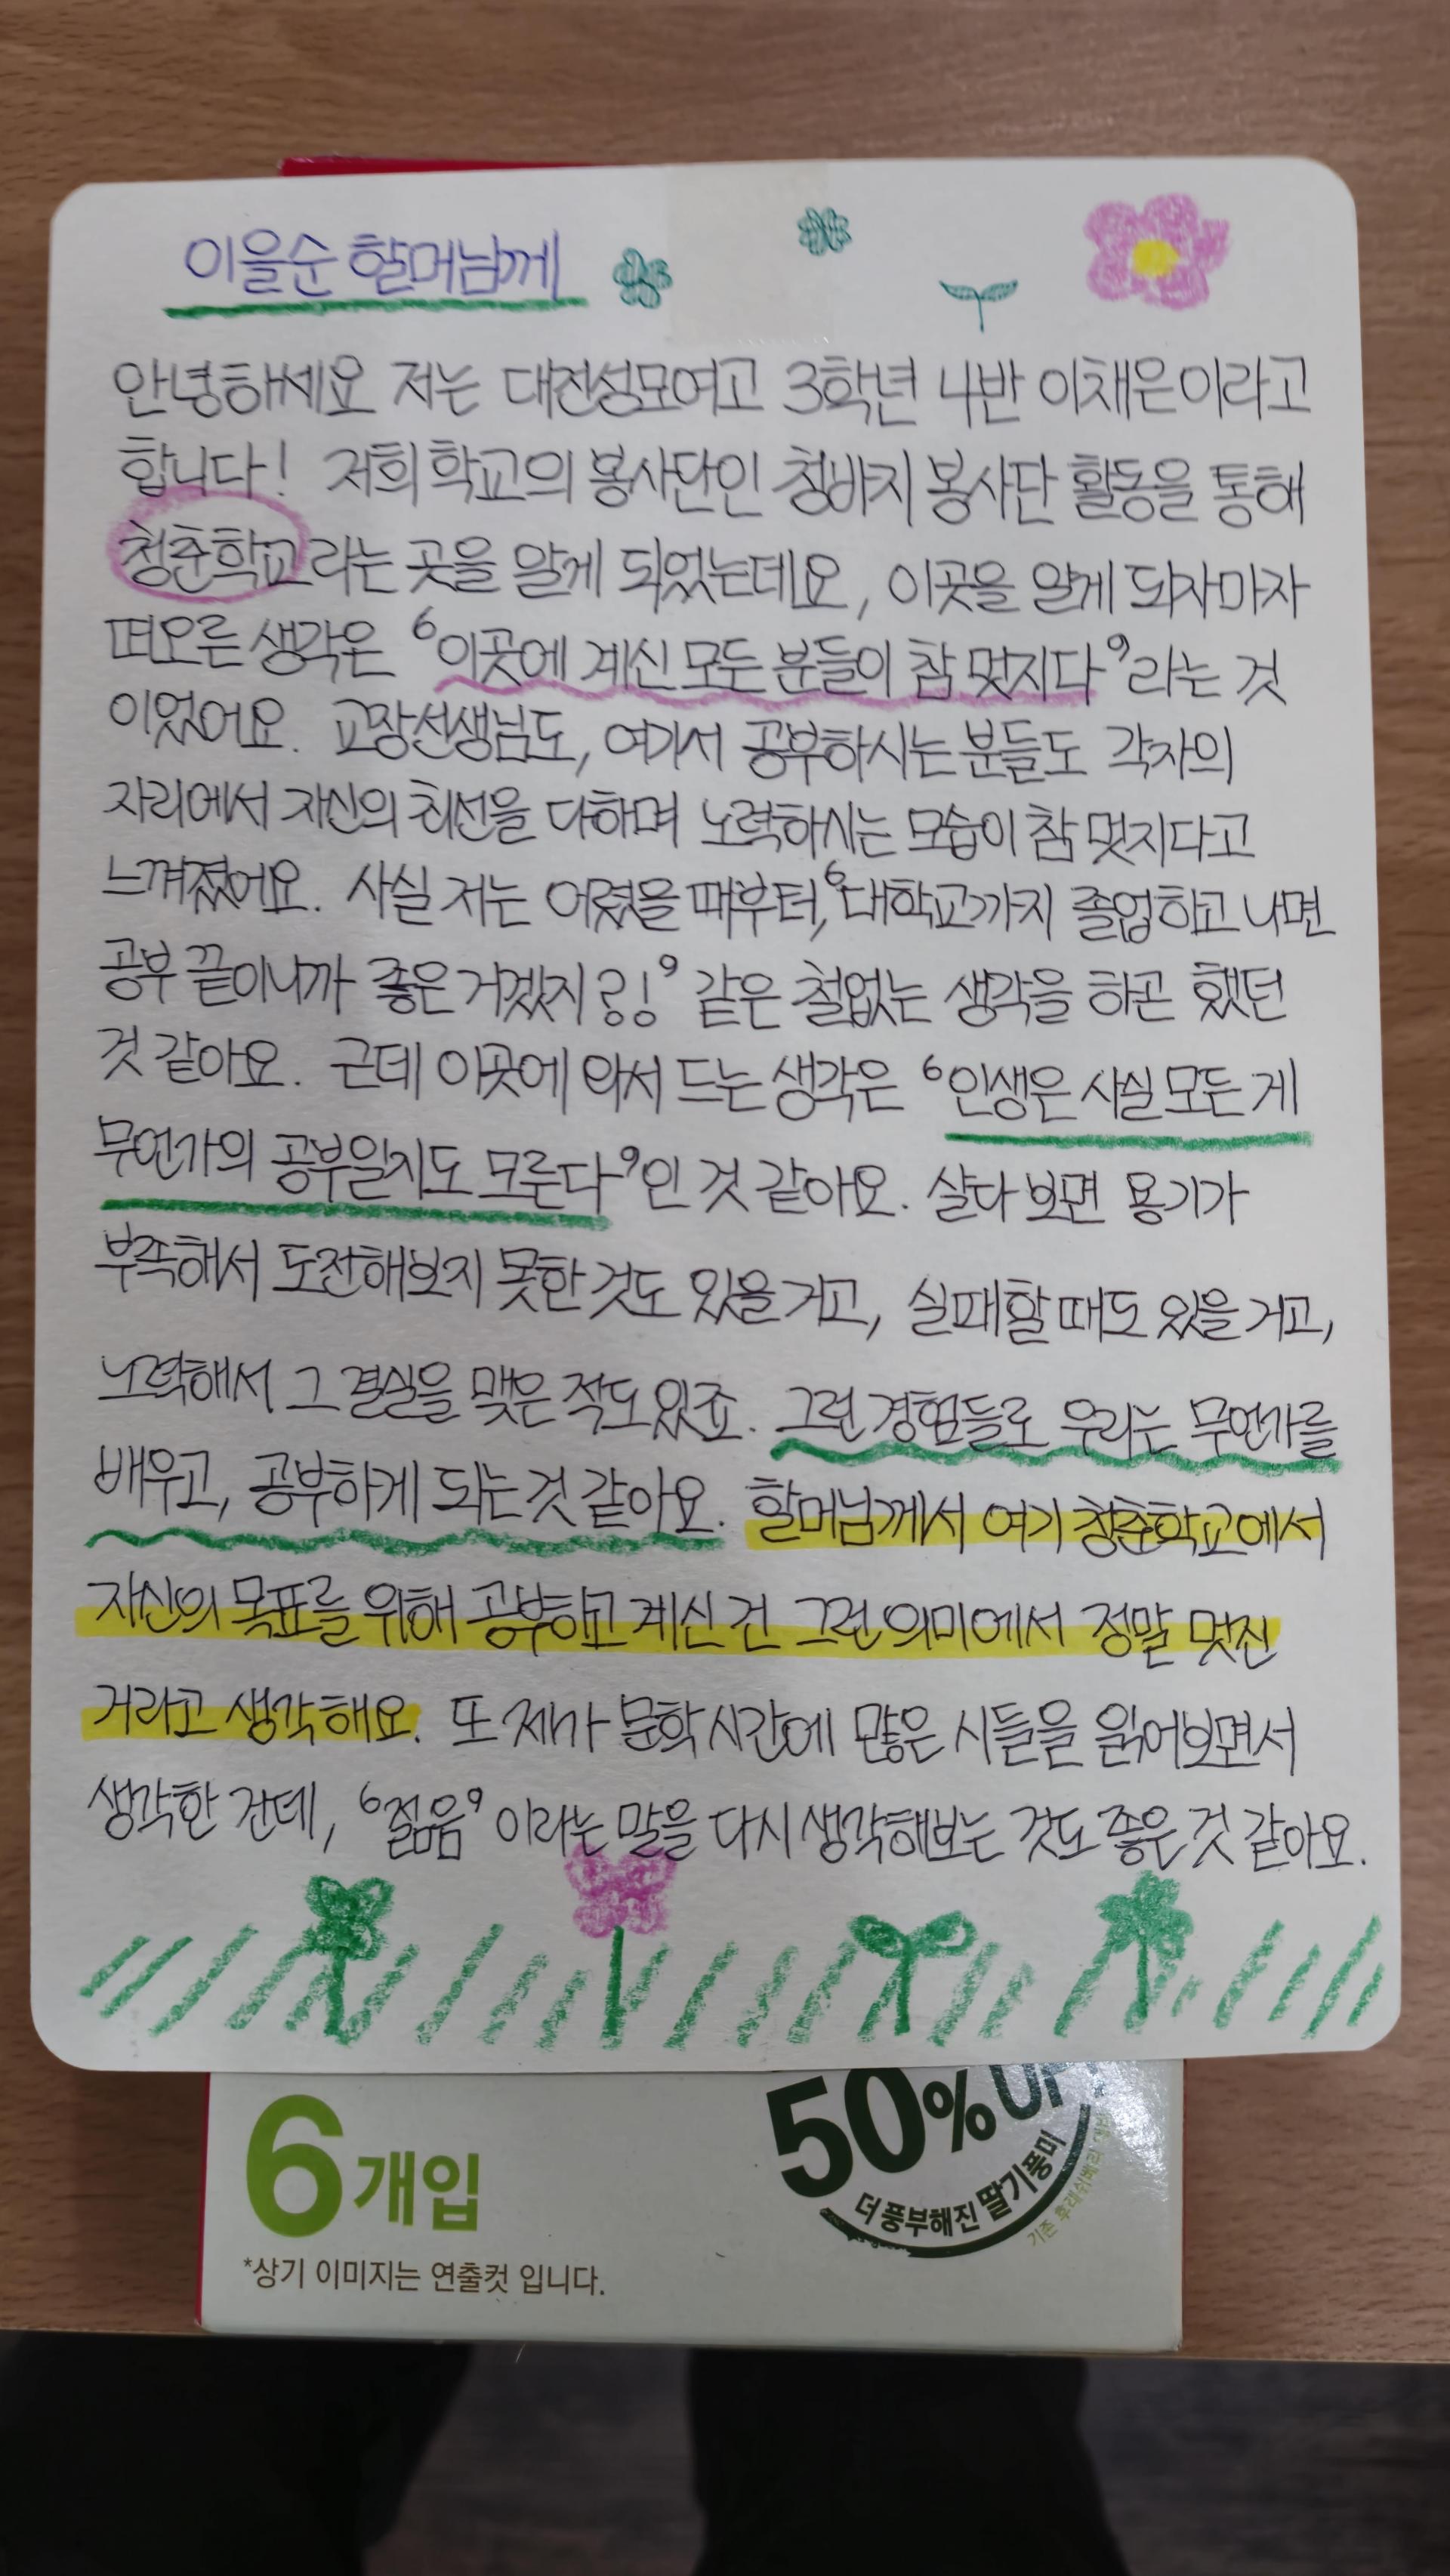 이을순 할머님께
안녕하세요 저는 대전성모여고 3학년 4반 이채은이라고
합니다! 저희 학교의 봉사단인 청바지 봉사단 활동을 통해
청춘학교라는 곳을 알게 되었는데요, 이곳을 알게 되자마자
떠오른 생각은 ‘이곳에 계신 모든 분들이 참 멋지다’라는 것
이었어요. 교장선생님도, 여기서 공부하시는 분들도 각자의
자리에서 자신의 최선을 다하며 노력하시는 모습이 참 멋지다고
느껴졌어요. 사실 저는 어렸을 때부터, ‘대학교까지 졸업하고 나면
공부 끝이니까 좋은 거겠지?!’ 같은 철없는 생각을 하곤 했던
것 같아요. 근데 이곳에 와서 드는 생각은 ‘인생은 사실 모든 게
무언가의 공부일지도 모른다’인 것 같아요. 살다 보면 용기가
부족해서 도전해보지 못한 것도 있을 거고, 실패할 때도 있을 거고,
노력해서 그 결실을 맺은 적도 있죠. 그런 경험들로 우리는 무언가를
배우고, 공부하게 되는 것 같아요. 할머님께서 여기 청춘학교에서
자신의 목표를 위해 공부하고 계신 건 그런 의미에서 정말 멋진
거라고 생각해요. 또 제가 문학시간에 많은 시들을 읽어보면서
생각한 건데, ‘젊음’ 이라는 말을 다시 생각해보는 것도 좋은 것 같아요.
6개입
50% UP
더 풍부해진 딸기풍미
기존 후레쉬베리 대비
*상기 이미지는 연출컷 입니다.